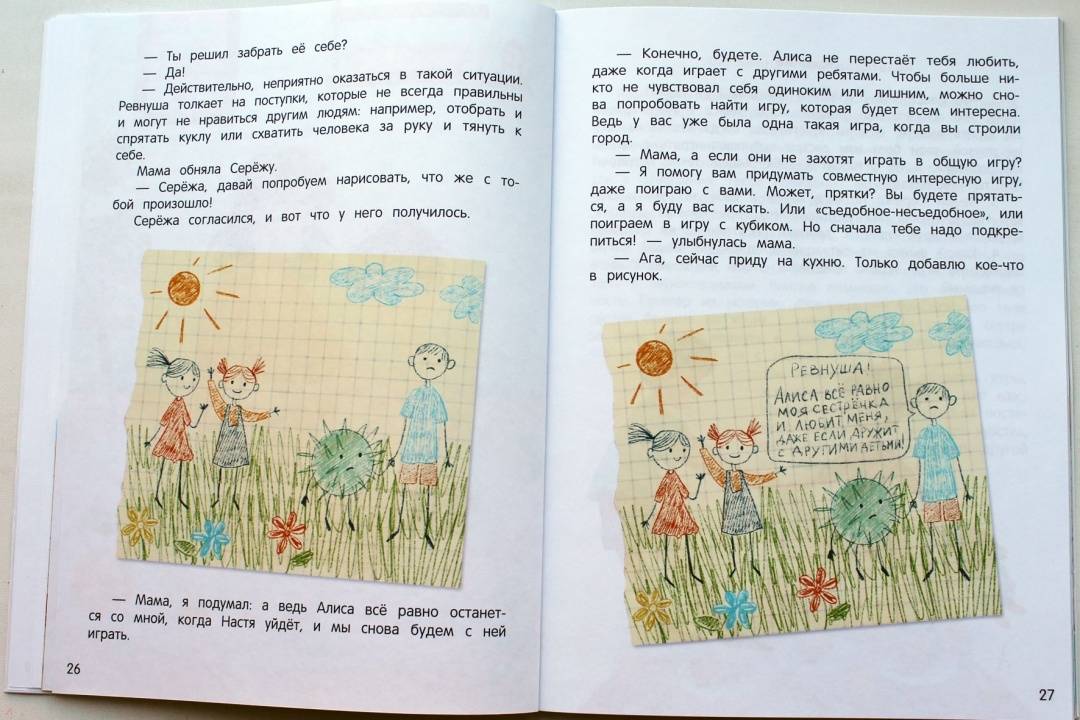 — Ты решил забрать её себе?
— Да!
— Действительно, неприятно оказаться в такой ситуации.
Ревнуша толкает на поступки, которые не всегда правильны
и могут не нравиться другим людям: например, отобрать и
спрятать куклу или схватить человека за руку и тянуть к
себе.
Мама обняла Серёжу.
— Серёжа, давай попробуем нарисовать, что же с то-
бой произошло!
Серёжа согласился, и вот что у него получилось.
— Мама, я подумал: а ведь Алиса всё равно останет-
ся со мной, когда Настя уйдёт, и мы снова будем с ней
играть.
26
— Конечно, будете. Алиса не перестаёт тебя любить,
даже когда играет с другими ребятами. Чтобы больше ни-
кто не чувствовал себя одиноким или лишним, можно сно-
ва попробовать найти игру, которая будет всем интересна.
Ведь у вас уже была одна такая игра, когда вы строили
город.
— Мама, а если они не захотят играть в общую игру?
— Я помогу вам придумать совместную интересную игру,
даже поиграю с вами. Может, прятки? Вы будете прятать-
ся, а я буду вас искать. Или «съедобное-несъедобное», или
поиграем в игру с кубиком. Но сначала тебе надо подкре-
питься! — улыбнулась мама.
— Ага, сейчас приду на кухню. Только добавлю кое-что
в рисунок.
РЕВНУША!
АЛИСА ВСЁ РАВНО
МОЯ СЕСТРЁНКА
И ЛЮБИТ МЕНЯ,
ДАЖЕ ЕСЛИ ДРУЖИТ
С ДРУГИМИ ДЕТЬМИ!
27